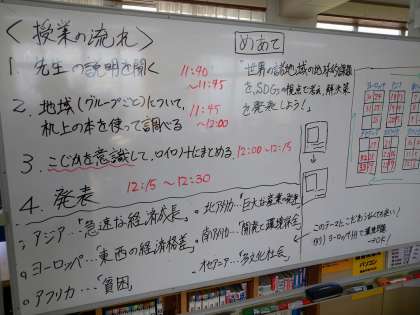 〈授業の流れ〉
1. 先生の説明を聞く
11:40
～11:45
2. 地域(グループごと)について、
机上の本を使って調べる
11:45
～12:00
3. こじかを意識して、ロイロノートにまとめる
12:00～12:15
4. 発表
12:15～12:30
・アジア…「急速な経済成長」
・ヨーロッパ…「東西の経済格差」
・アフリカ…「貧困」
・北アメリカ…「巨大な産業の発達
・南アメリカ…「開発と環境保全
・オセアニア…「多文化社会」
めあて
「世界の諸地域の地球的課題
を、SDGsの視点で考え、解決策
を発表しよう!」
このテーマにこだわらなくても良い!
例) ヨーロッパ州で環境問題
→OK!
ヨーロッパ
パソコン